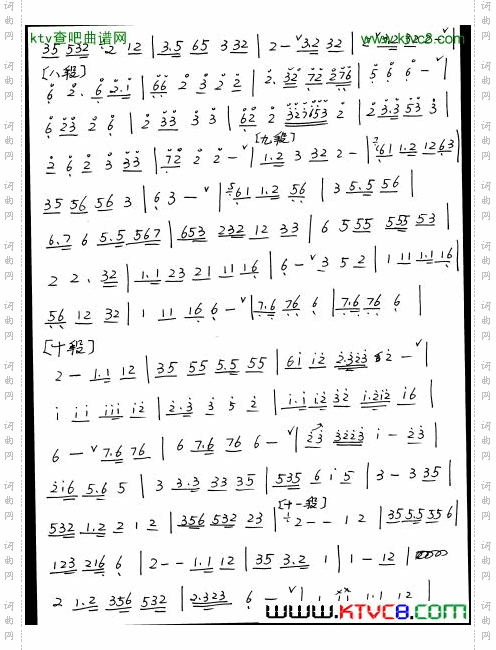 ktv查吧曲谱网
www.ktvc8.com
35 532 2 12 | 3.5 65 3 32 | 2 - ˅3.2 32 |
[八段]
6 2 . 6 2.1 | 66 2 3 2 2 | 2. 32 72 276 | 5 6 6 - ˅|
6 23 2 6 | 2 33 3 3 | 62 2 2 | 2 3.3 53 3 |
[九段]
2 6 2 3 33 | 72 2 2 - ˅| 1.2 3 32 2 - | 761 1.2 1263 |
35 56 56 3 | 6 3 - ˅| 561 1.2 56 | 3 5.5 56 |
6.7 6 5.5 567 | 653 232 12 33 | 6 5 55 555 53 |
2 2 . 32 | 1.1 23 21 11 16 | 6 - ˅3 5 2 | 1 11 1.1 16 |
56 12 32 | 1 11 16 6 - ˅| 7.6 76 6 | 7.6 76 6 |
[十段]
2 - 1.1 12 | 35 55 5.5 55 | 61 12 2.323 2 - ˅|
1 11 111 12 | 2.3 3 5 2 | 1.112 32 1.212 16 |
6 - ˅7.6 76 | 6 7.6 76 6 - ˅| 23 3223 1 - 23 |
216 5.6 5 | 3 3.3 33 35 | 535 6 1 5 | 3 - 3 35 |
[十一段]
532 1.2 2 1 2 | 356 532 23 | 2 - - 1 2 | 35 5.5 56 |
123 216 6 | 2 - - 1.1 12 | 35 3.2 1 | 1 - 12 |
2 1.2 356 532 | 2.323 6 - ˅| 1 11 1.1 12 |
WWW.KTVC8.COM
词曲网